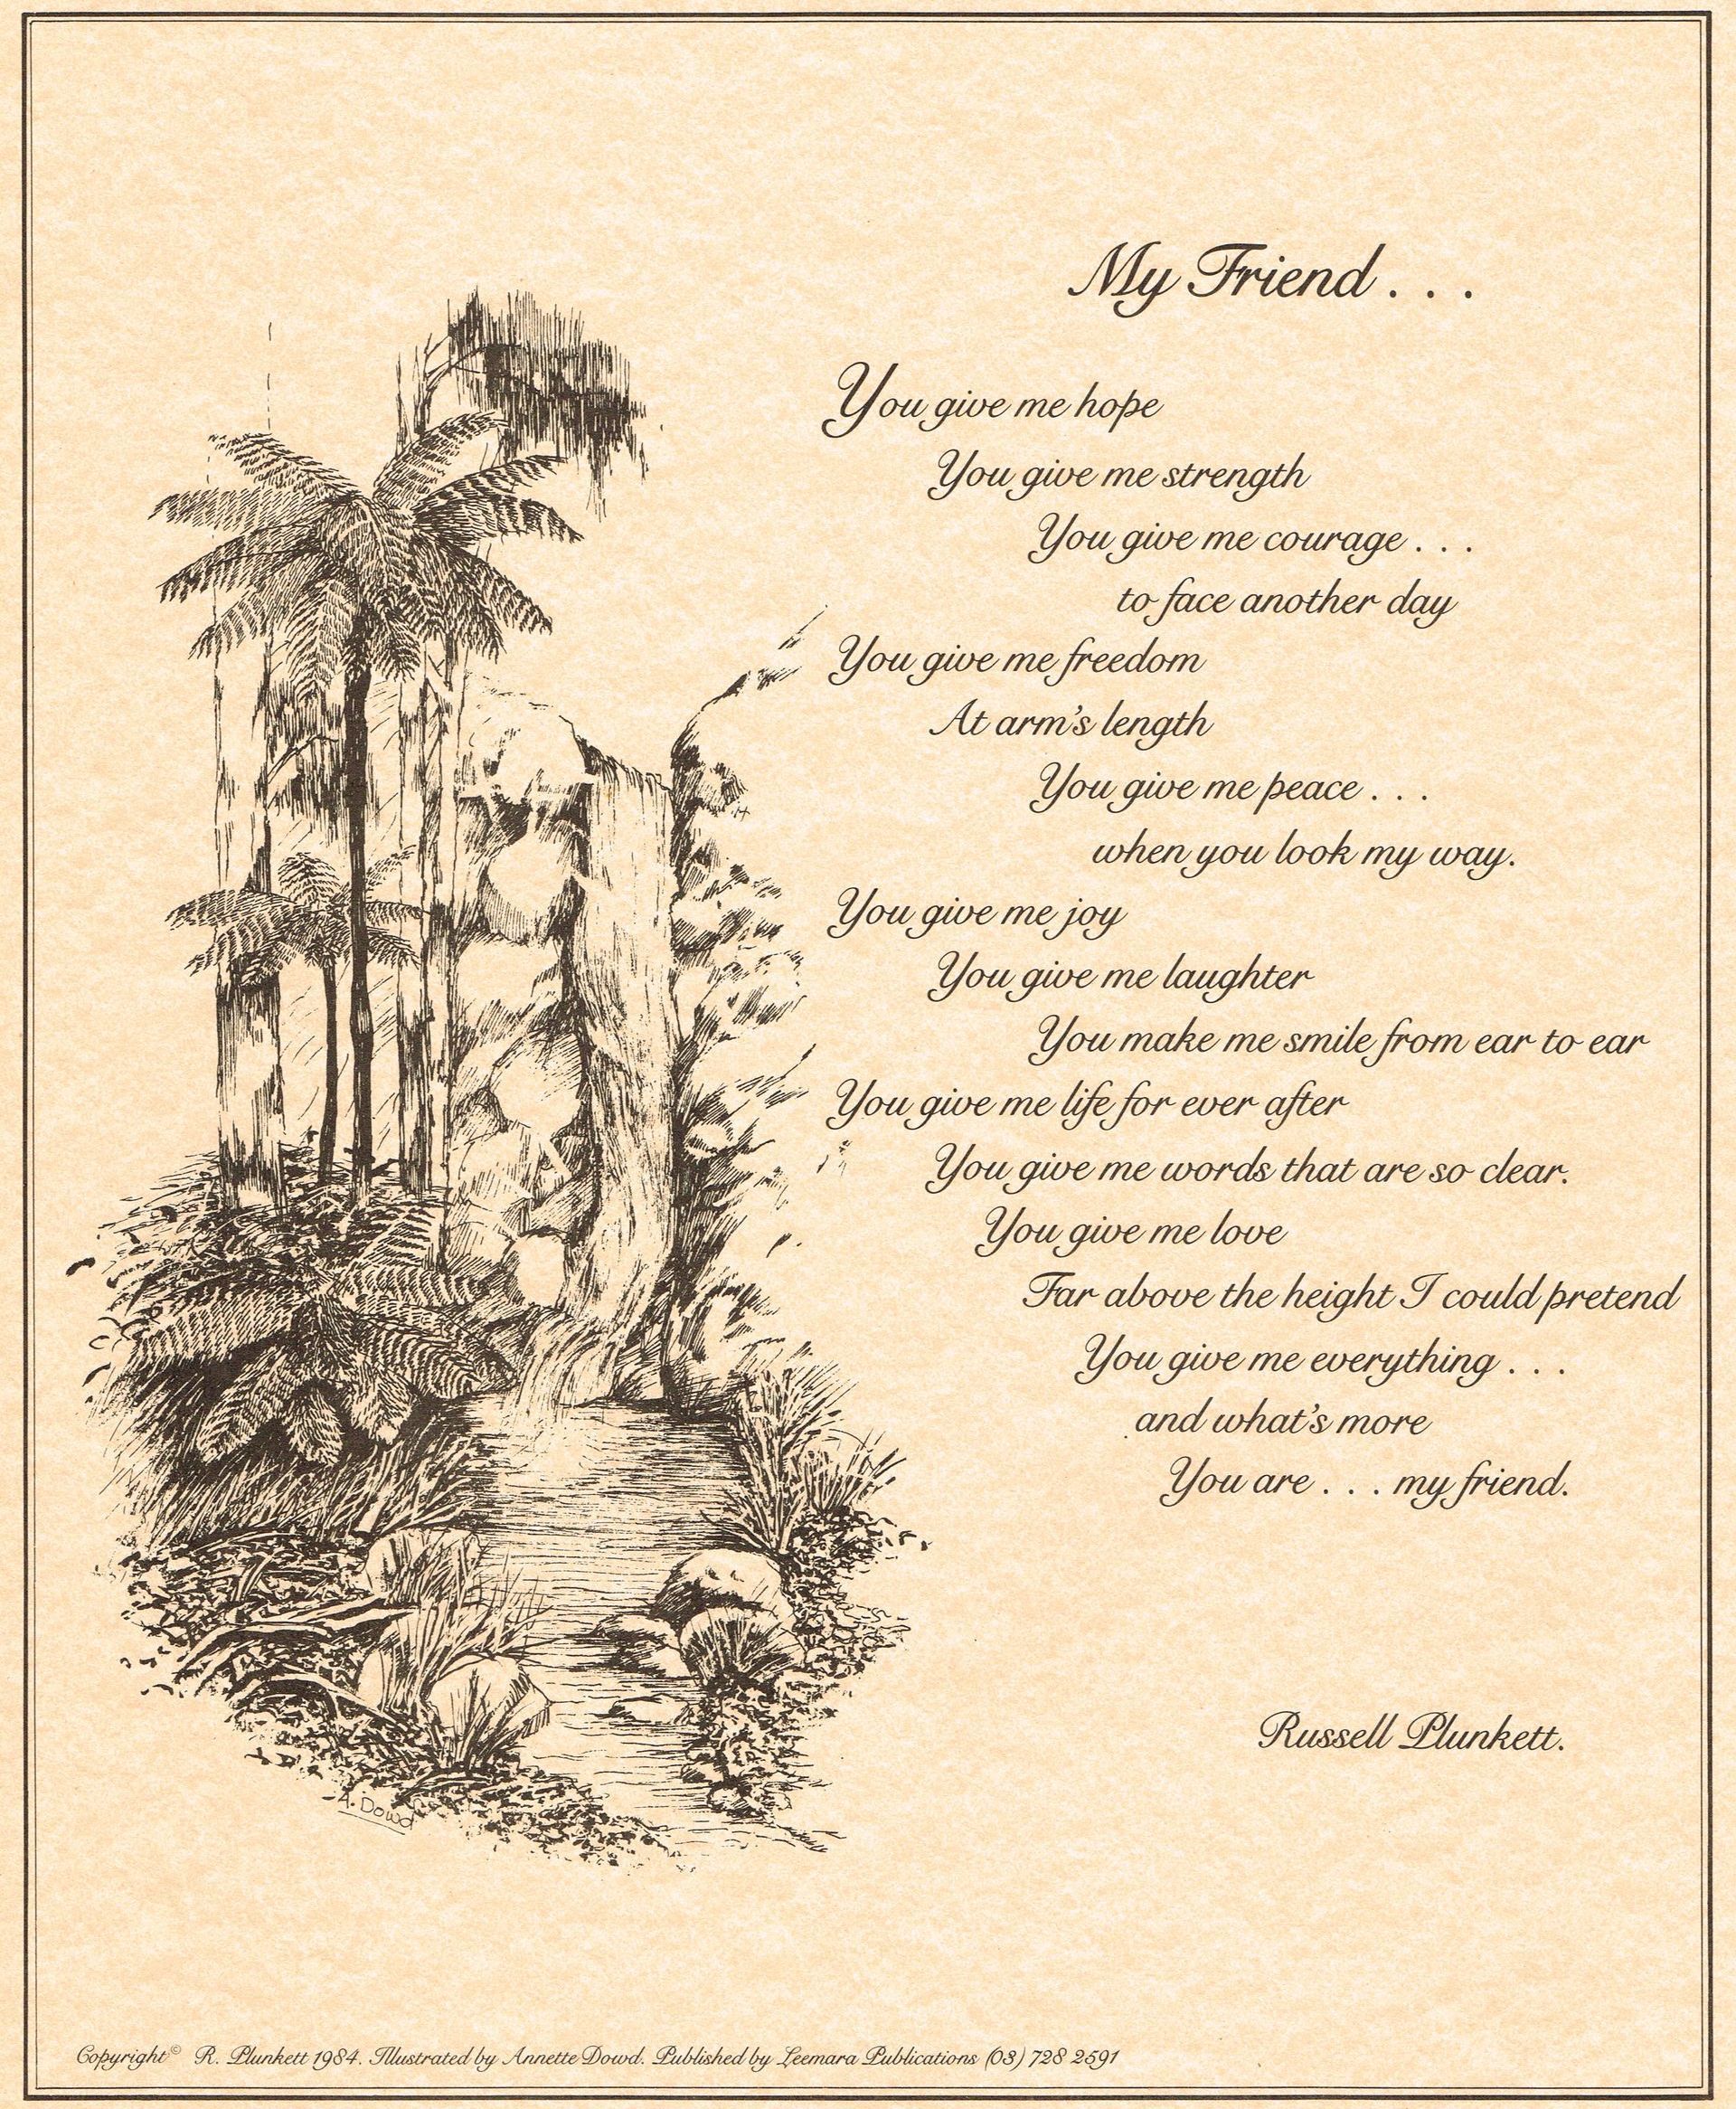 My Friend . . .
You give me hope
You give me strength
You give me courage . . .
to face another day
You give me freedom
At arm's length
You give me peace . . .
when you look my way.
You give me joy
You give me laughter
You make me smile from ear to ear
You give me life for ever after
You give me words that are so clear.
You give me love
Far above the height I could pretend
You give me everything . . .
and what's more
You are . . . my friend.
Russell Plunkett.
A. Dowd
Copyright© R. Plunkett 1984. Illustrated by Annette Dowd. Published by Leemara Publications (03) 728 2591